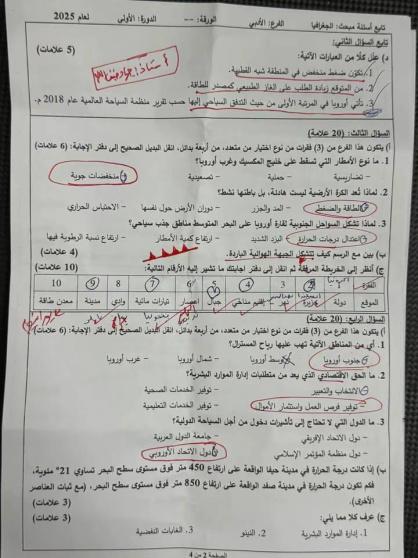 تابع أسئلة مبحث: الجغرافيا الفرع: الأدبي الورقة: -- الدورة: الأولى لعام 2025
تابع السؤال الثاني:
د) علل كلاً من العبارات الآتية: (5 علامات)
1. تكوّن ضغط منخفض في المنطقة شبه القطبية.
2. من المتوقع زيادة الطلب على الغاز الطبيعي كمصدر للطاقة.
3. تأتي أوروبا في المرتبة الأولى من حيث التدفق السياحي إليها حسب تقرير منظمة السياحة العالمية عام 2018 م.
السؤال الثالث: (20 علامة)
أ) يتكون هذا الفرع من (3) فقرات من نوع اختيار من متعدد، من أربعة بدائل، انقل البديل الصحيح إلى دفتر الإجابة: (6 علامات)
1. ما نوع الأمطار التي تسقط على خليج المكسيك وغرب أوروبا؟
- تضاريسية - حملية - تصعيدية - منخفضات جوية
2. لماذا تُعد الكرة الأرضية ليست هادئة، بل باطنها نشط؟
- الطاقة والضغط - المد والجزر - دوران الأرض حول نفسها - الاحتباس الحراري
3. لماذا تشكل السواحل الجنوبية لقارة أوروبا على البحر المتوسط مناطق جذب سياحي؟
- اعتدال درجات الحرارة - البرد الشديد - ارتفاع كمية الأمطار - ارتفاع نسبة الرطوبة فيها
ب) بين مع الرسم كيف تتشكل الجبهة الهوائية الباردة. (4 علامات)
ج) انظر إلى الخريطة المرفقة ثم انقل إلى دفتر اجابتك ما تشير إليه الأرقام التالية: (10 علامات)
الفقرة 1 2 3 4 5 6 7 8 9 10
الموقع دولة جزيرة إقليم مناخي جبال إعصار تيارات مائية وادي مدينة معدن طاقة
السؤال الرابع: (20 علامة)
أ) يتكون هذا الفرع من (3) فقرات من نوع اختيار من متعدد، من أربعة بدائل، انقل البديل الصحيح إلى دفتر الإجابة: (6 علامات)
1. أي من المناطق الآتية تهب عليها رياح المسترال؟
- جنوب أوروبا - وسط أوروبا - شمال أوروبا - غرب أوروبا
2. ما الحق الاقتصادي الذي يعد من متطلبات إدارة الموارد البشرية؟
- الانتخاب والتعبير - توفير الخدمات الصحية
- توفير فرص العمل واستثمار الأموال - توفير الخدمات التعليمية
3. ما الدول التي لا تحتاج إلى تأشيرات دخول من أجل السياحة الدولية؟
- دول الاتحاد الإفريقي - جامعة الدول العربية
- دول منظمة المؤتمر الإسلامي - دول الاتحاد الأوروبي
ب) إذا كانت درجة الحرارة في مدينة حيفا الواقعة على ارتفاع 450 متر فوق مستوى سطح البحر تساوي 21° مئوية،
فكم تكون درجة الحرارة في مدينة صفد الواقعة على ارتفاع 850 متر فوق مستوى سطح البحر، (مع ثبات العناصر
الأخرى). (3 علامات)
ج) عرف كلاً مما يلي: (3 علامات)
1. إدارة الموارد البشرية 2. النينو 3. الغابات النفضية
الصفحة 2 من 4